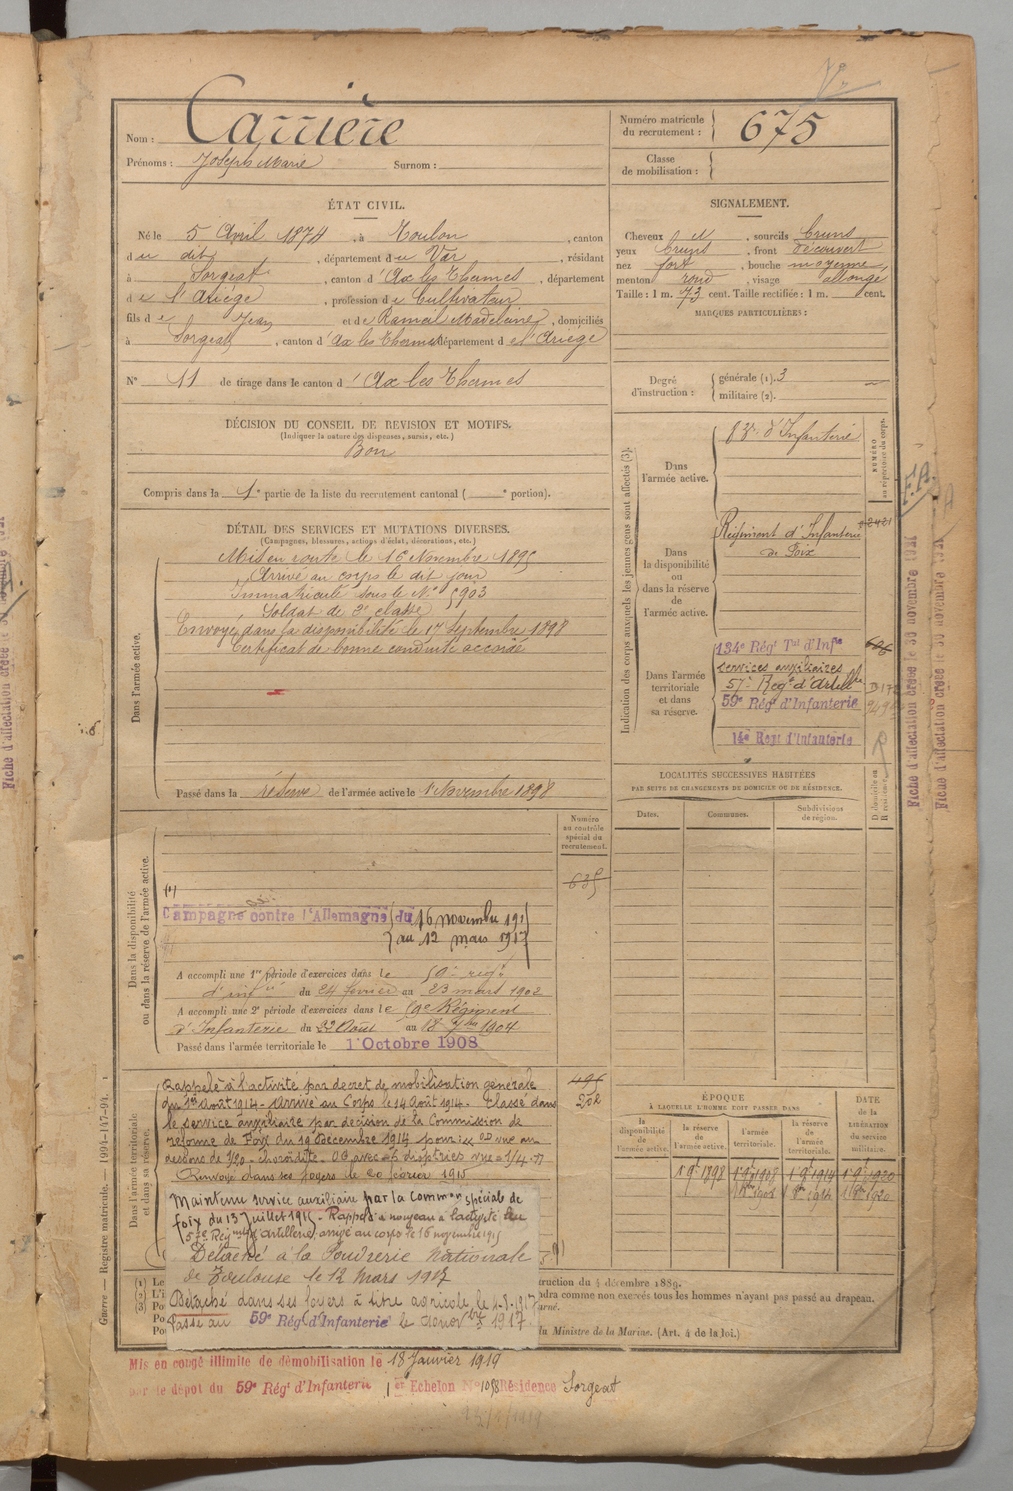 Nom : Carrière
Prénoms : Joseph Marie Surnom :
Numéro matricule
du recrutement : 675
Classe
de mobilisation :
ÉTAT CIVIL.
Né le 5 Avril 1874, à Toulon, canton
du dit, département du Var, résidant
à Sorgeat, canton d'Ax les Thermes, département
de l'Ariège, profession de Cultivateur
fils de Jean et de Madeleine, domiciliés
à Sorgeat, canton d'Ax les Thermes département de l'Ariège
N° 11 de tirage dans le canton d'Ax les Thermes
SIGNALEMENT.
Cheveux et, sourcils bruns
yeux bruns, front découvert
nez fort, bouche moyenne,
menton rond, visage allongé
Taille : 1 m. 73 cent. Taille rectifiée : 1 m. cent.
MARQUES PARTICULIÈRES :
Degré
d'instruction :
générale (1). 3
militaire (2).
DÉCISION DU CONSEIL DE REVISION ET MOTIFS.
(Indiquer la nature des dispenses, sursis, etc.)
Bon
Compris dans la 1e partie de la liste du recrutement cantonal ( e portion).
DÉTAIL DES SERVICES ET MUTATIONS DIVERSES.
(Campagnes, blessures, actions d'éclat, décorations, etc.)
Dans l'armée active.
Mis en route le 16 Novembre 1895
Arrivé au corps le dit jour
Immatriculé sous le N° 5903
Soldat de 2e classe
Envoyé dans la disponibilité le 17 Septembre 1898
Certificat de bonne conduite accordé
Passé dans la réserve de l'armée active le 1 Novembre 1898
Indication des corps auxquels les jeunes gens sont affectés (3).
NUMÉRO
au répertoire du corps.
Dans
l'armée active.
d'Infanterie
Dans
la disponibilité
ou
dans la réserve
de
l'armée active.
Régiment d'Infanterie
de Foix
Dans l'armée
territoriale
et dans
sa réserve.
134e Régt Tal d'Infie
services auxiliaires
57e Régt d'Artillie
59e Régt d'Infanterie
14e Regt d'Infanterie
F.A.
Fiche d'affectation créée le 30 novembre 1921
LOCALITÉS SUCCESSIVES HABITÉES
PAR SUITE DE CHANGEMENTS DE DOMICILE OU DE RÉSIDENCE.
Dates.
Communes.
Subdivisions
de région.
D domicile ou
R résidence.
Numéro
au contrôle
spécial du
recrutement.
635
Dans la disponibilité
ou dans la réserve de l'armée active.
Campagne contre l'Allemagne du 16 novembre 191
au 12 mars 1917
A accompli une 1re période d'exercices dans le
du 24 février au 23 mars 1902
A accompli une 2e période d'exercices dans le Régiment
d'Infanterie du 22 Août au 18 7bre 1904
Passé dans l'armée territoriale le 1 Octobre 1908
Dans l'armée territoriale
et dans sa réserve.
Rappelé à l'activité par decret de mobilisation générale
du 1er Août 1914 - Arrivé au Corps le 14 Août 1914 - Classé dans
le service auxiliaire par décision de la Commission de
réforme de Foix du 19 décembre 1914 pour
Renvoyé dans ses foyers le 20 février 1915
Maintenu service auxiliaire par la Common spéciale de
foix du 13 juillet 1915 - Rappelé à nouveau à l'activité au
57e Régt d'artillerie, arrivé au corps le 16 novembre 1915
Détaché à la Poudrerie Nationale
de Toulouse le 12 Mars 1917
Détaché dans ses foyers à titre agricole le
Passé au 59e Régt d'Infanterie le 1917
ÉPOQUE
À LAQUELLE L'HOMME DOIT PASSER DANS
la
disponibilité
de
l'armée active.
la réserve
de
l'armée active.
l'armée
territoriale.
la réserve
de
l'armée
territoriale.
DATE
de la
LIBÉRATION
du service
militaire.
Guerre. — Registre matricule. — 1994-147-94.
(1) Le
(2) L'i
(3) Po
Po
Po
truction du 4 décembre 1889.
ndra comme non exercés tous les hommes n'ayant pas passé au drapeau.
du Ministre de la Marine. (Art. 4 de la loi.)
Mis en congé illimité de démobilisation le 18 Janvier 1919
par le dépôt du 59e Régt d'Infanterie 1er Echelon N° 1058 Résidence Sorgeat